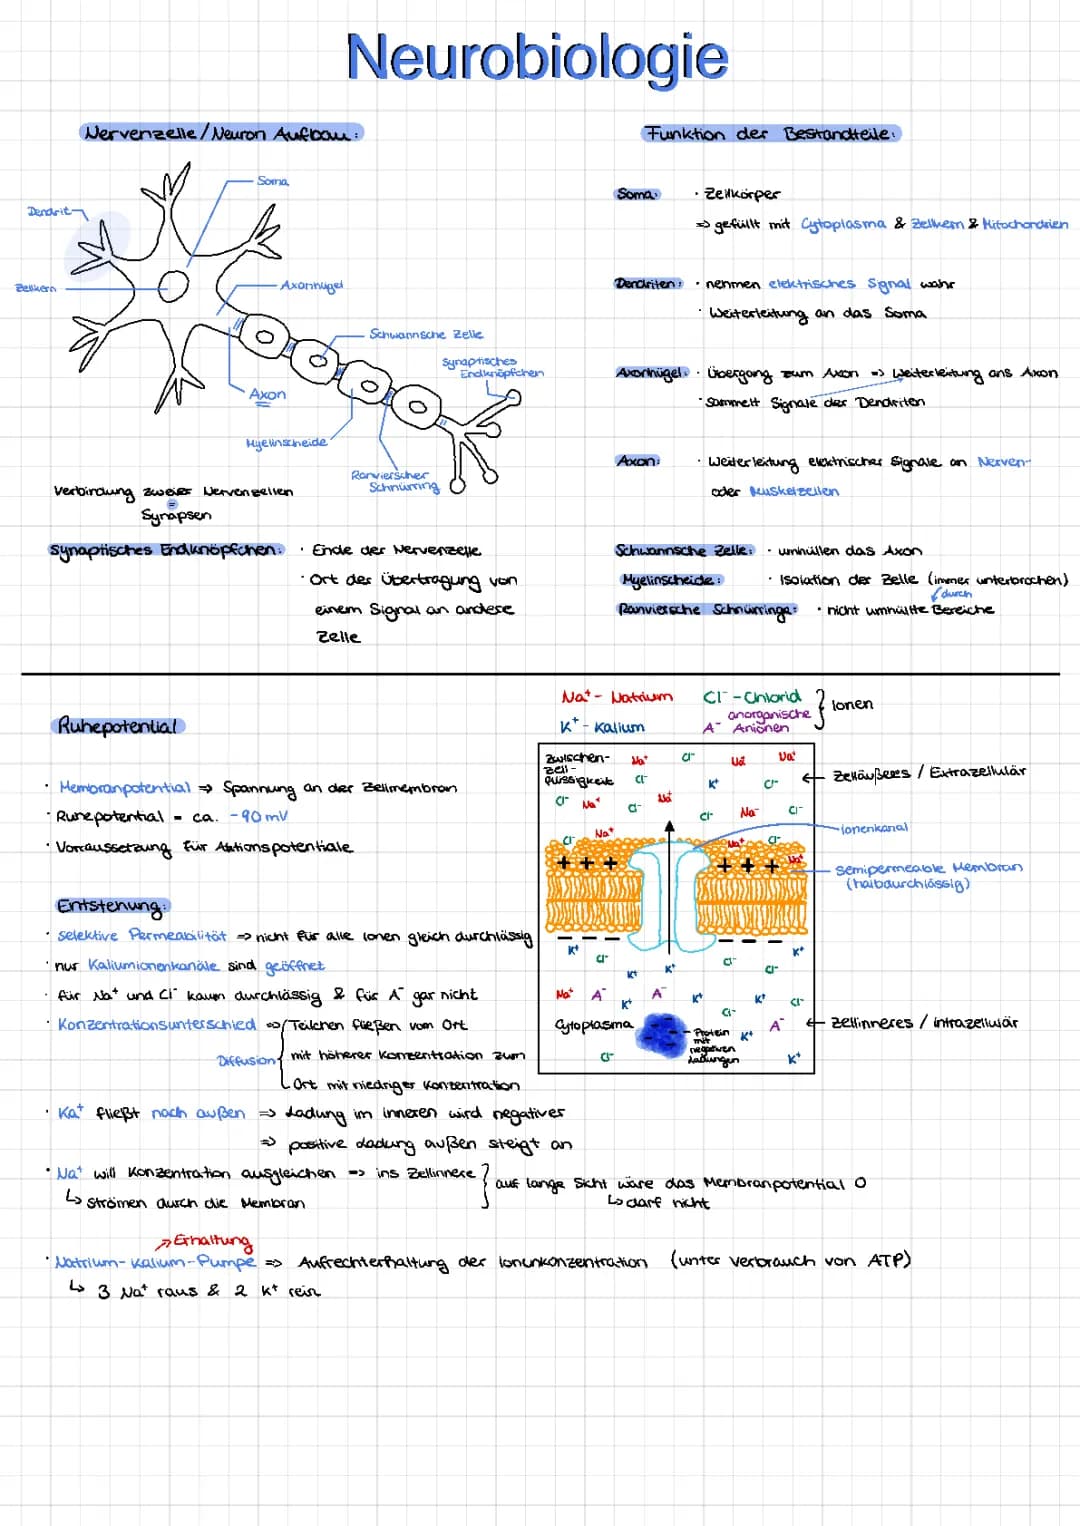 Neurobiologie
Nervenzelle/Neuron Aufbau:
Soma
Dendrit
Zellkern
Axonhügel
Schwannsche Zelle
Synaptisches
Endknöpfchen
Axon
Myelinscheide
Ranvierscher
Schnürring
Verbindung zweier Nervenzellen
=
Synapsen
Synaptisches Endknöpfchen: · Ende der Nervenzelle
· Ort der Übertragung von
einem Signal an andere
Zelle
Funktion der Bestandteile:
Soma: · Zellkörper
⇒ gefüllt mit Cytoplasma & Zellkern & Mitochondrien
Dendriten: · nehmen elektrisches Signal wahr
· Weiterleitung an das Soma
Axonhügel: · Übergang zum Axon ⇒ Weiterleitung ans Axon
· sammelt Signale der Dendriten
Axon: · Weiterleitung elektrischer Signale an Nerven-
oder Muskelzellen
Schwannsche Zelle: · umhüllen das Axon
Myelinscheide: · Isolation der Zelle (immer unterbrochen)
durch
Ranviersche Schnürringe: · nicht umhüllte Bereiche
Ruhepotential
· Membranpotential ⇒ Spannung an der Zellmembran
· Ruhepotential = ca. -90mV
· Vorraussetzung für Aktionspotentiale
Entstehung:
· Selektive Permeabilität ⇒ nicht für alle Ionen gleich durchlässig
· nur Kaliumionenkanäle sind geöffnet
· für Na⁺ und Cl⁻ kaum durchlässig & für A⁻ gar nicht
· Konzentrationsunterschied ⇒ Teilchen fließen vom Ort
Diffusion mit höherer Konzentration zum
Ort mit niedriger Konzentration
· Ka⁺ fließt nach außen ⇒ Ladung im inneren wird negativer
⇒ positive Ladung außen steigt an
· Na⁺ will Konzentration ausgleichen ⇒ ins Zellinnere
↳ strömen durch die Membran
auf lange Sicht wäre das Membranpotential 0
↳ darf nicht
⇒ Erhaltung
· Natrium-Kalium-Pumpe ⇒ Aufrechterhaltung der Ionunkonzentration (unter Verbrauch von ATP)
↳ 3 Na⁺ raus & 2 K⁺ rein
Na⁺ - Natrium Cl⁻ - Chlorid
K⁺ - Kalium A⁻ anorganische Anionen
Ionen
Zwischen-
zell-
flüssigkeit
Na⁺ Cl⁻ Na⁺ Na⁺
Cl⁻ K⁺ Cl⁻
Cl⁻ Na⁺ Cl⁻ Na⁺ Cl⁻ Na⁻ Cl⁻
Cl⁻ Na⁺ Na⁺ Cl⁻ Na⁺
+ + + + + +
− − − − − −
K⁺ Cl⁻ K⁺ K⁺ Cl⁻ Cl⁻ K⁺
Na⁺ A⁻ K⁺ A⁻ K⁺ K⁺ Cl⁻
Cl⁻ A⁻
Cytoplasma
K⁺
Cl⁻ K⁺
Protein
mit
negativen
Ladungen
← Zelläußeres / Extrazellulär
Ionenkanal
semipermeable Membran
(halbdurchlässig)
← Zellinneres / intrazellulär